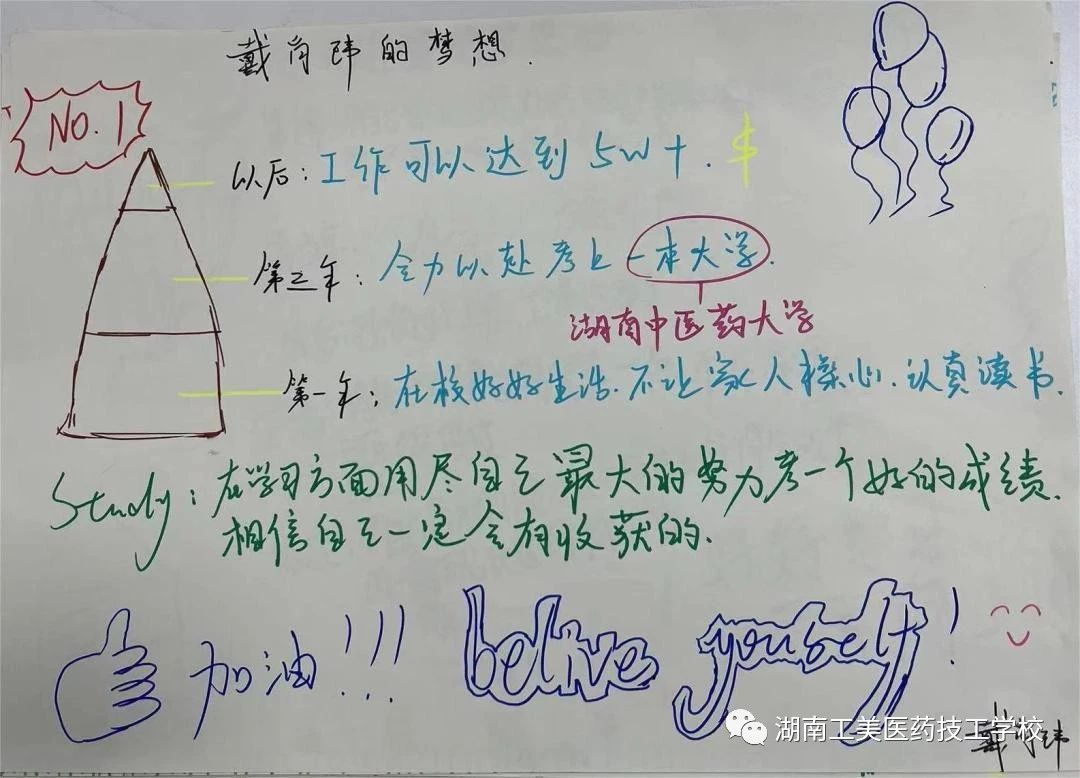 戴尚玮的梦想.
NO.1
以后：工作可以达到5W+.$
第三年：全力以赴考上一本大学.
湖南中医药大学
第一年：在校好好生活.不让家人操心.认真读书.
Study：在学习方面用尽自己最大的努力考一个好的成绩.
相信自己一定会有收获的.
加油!!!
belive youself!
湖南工美医药技工学校